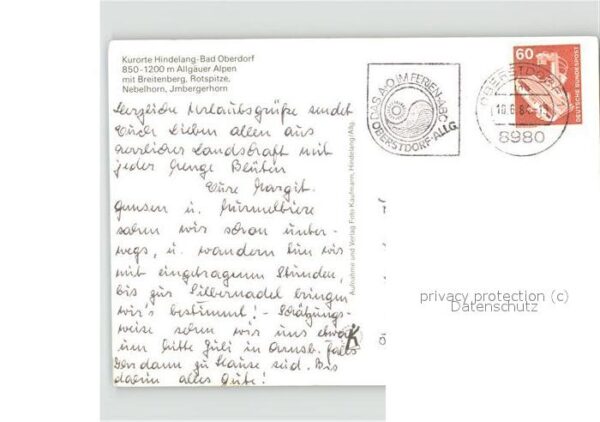 Kurorte Hindelang-Bad Oberdorf
850-1200 m Allgäuer Alpen
mit Breitenberg, Rotspitze,
Nebelhorn, Jmbergerhorn
Herzliche Urlaubsgrüße sendet
Euch Lieben allen aus
herrlicher Landschaft mit
jeder Menge Blüten
Eure Margit.
Gemsen u. Murmeltiere
sahen wir schon unter-
wegs, u. wandern tun wir
mit eingetragenen Stunden,
bis zur Silbernadel bringen
wir's bestimmt! - Schätzungs-
weise sehen wir uns etwa
um Mitte Juli in Arnsb. falls
Ihr dann zu Hause seid. Bis
dahin alles Gute!
Aufnahme und Verlag Foto Kaufmann, Hindelang/Allg.
DAS A-O IM FERIEN-ABC
OBERSTDORF-ALLG.
OBERSTDORF
8980
60
DEUTSCHE BUNDESPOST
privacy protection (c)
Datenschutz